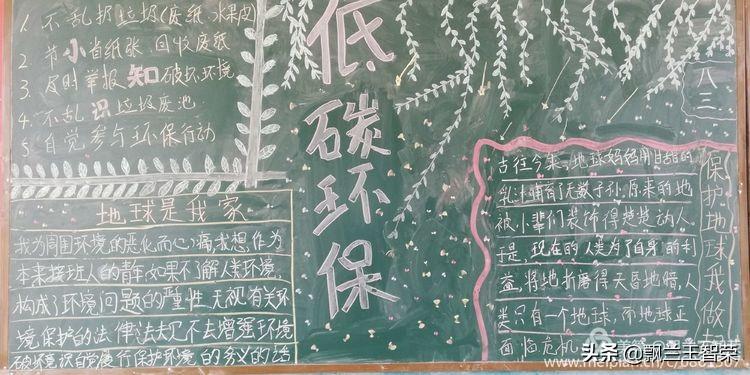 1. 不乱扔垃圾(废纸.水果皮)
2. 节小省纸张.回收废纸
3. 及时举报知破坏环境
4. 不乱识垃圾废池
5 自觉参与环保行动
地球是我家
我为周围环境的恶化而心痛我想作为
本来接班人的青年如果不了解人类环境
构成}环境问题的严重性无视有关环
境保护的法律法规不去增强环境
自觉履行保护环境的义务的话
低碳环保
八三
古往今来,地球妈妈用甘甜的
乳汁哺育了无数子孙.原来的地
被小辈们装饰得楚楚动人
于是,现在的人类为了自身的利
益,将地折磨得天昏地暗,人
类只有一个地球,而地球正
面临危机
保护地球我做起
头条 @飘兰王智荣